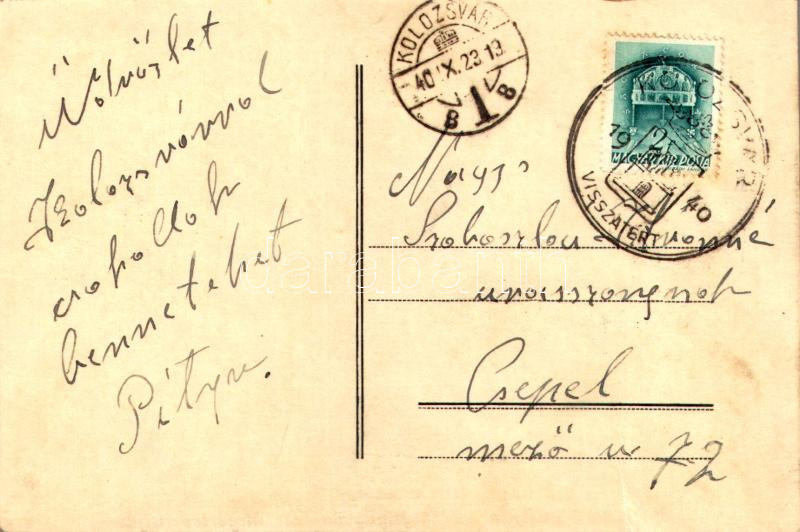 Üdvözlet
Kolozsvárról
csokollok
benneteket
Pityu.
KOLOZSVÁR
40 IX. 23. 13
B 1 B
MAGYAR KIR. POSTA
KOLOZSVÁR
19 40
VISSZATÉRT
Nagys
Szoboszlou
urasszonynak
Csepel
mező u 72
darabanth